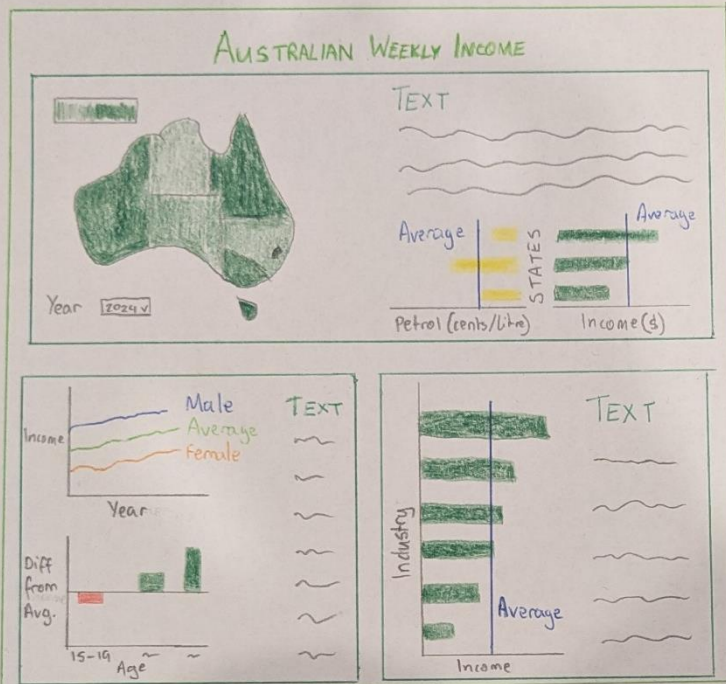 AUSTRALIAN WEEKLY INCOME
TEXT
Average
STATES
Average
Petrol (cents/litre)
Income ($)
Year 2024 v
Income
Male
Average
Female
Year
TEXT
Diff
from
Avg.
15-19
Age
Industry
Average
Income
TEXT